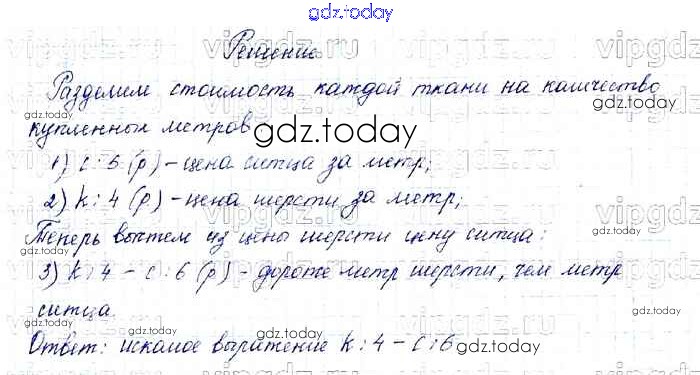 gdz.today
Решение
Разделим стоимость каждой ткани на количество
купленных метров
gdz.today
1) с : 6 (р) – цена ситца за метр;
2) k : 4 (р) – цена шерсти за метр;
Теперь вычтем из цены шерсти цену ситца:
3) k : 4 – с : 6 (р) – дороже метр шерсти, чем метр
ситца.
Ответ: искомое выражение k : 4 – с : 6
gdz.today